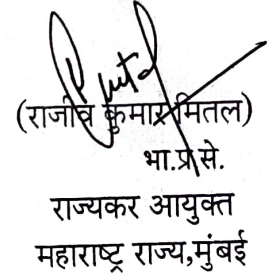 (राजीव कुमार मितल)
भा.प्र.से.
राज्यकर आयुक्त
महाराष्ट्र राज्य,मुंबई